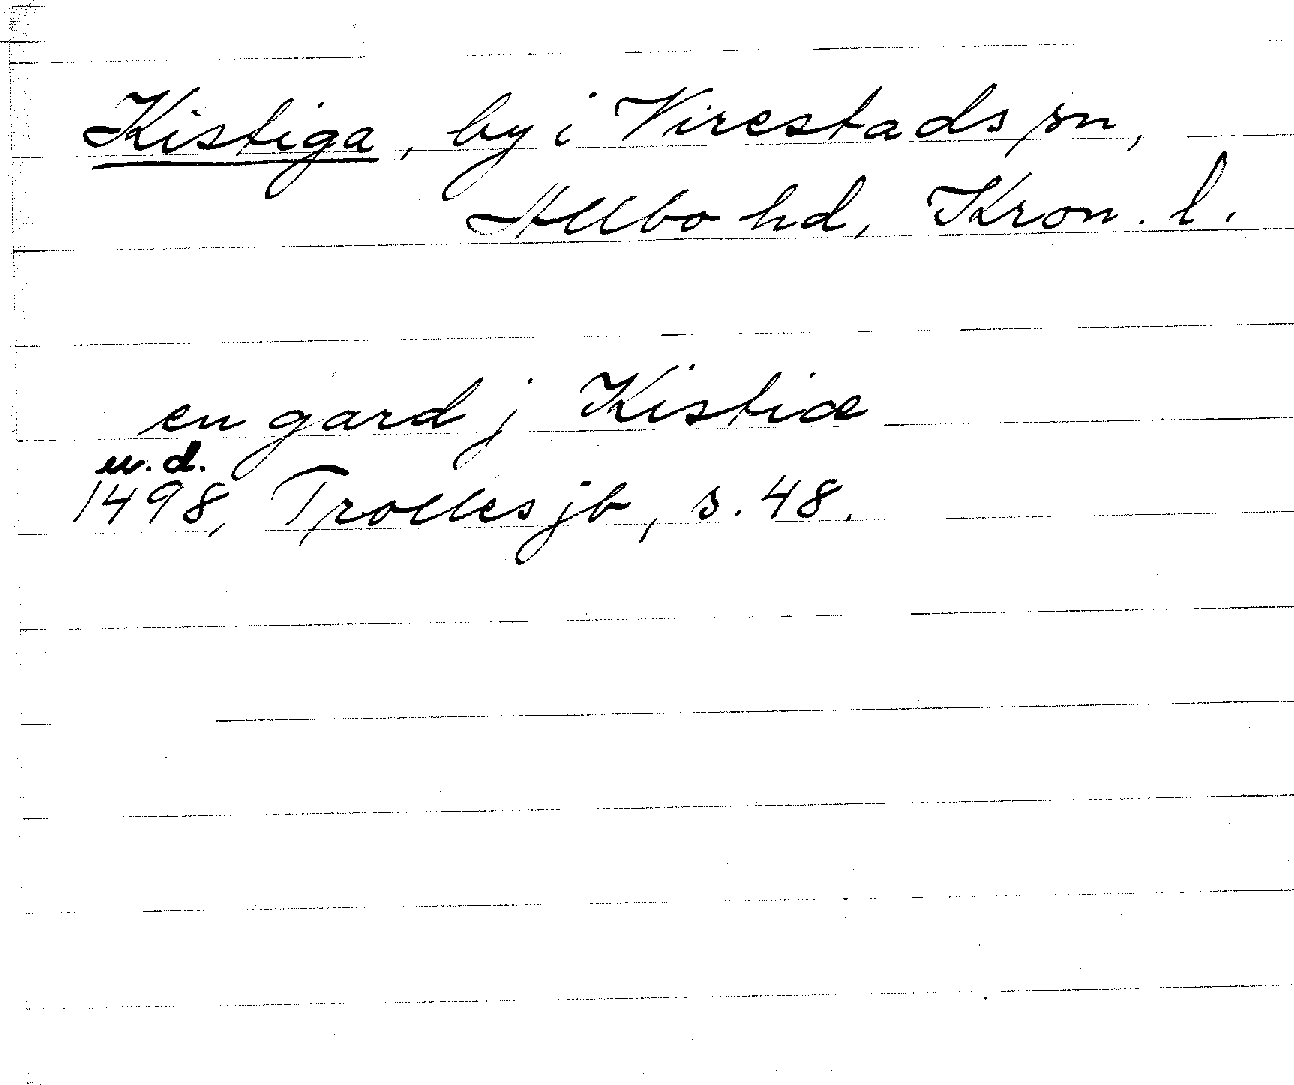 Kistiga, by i Virestads sn,
Allbo hd, Kron. l.
en gard j Kistiæ
u.d.
1498, Trolles jb, s. 48.